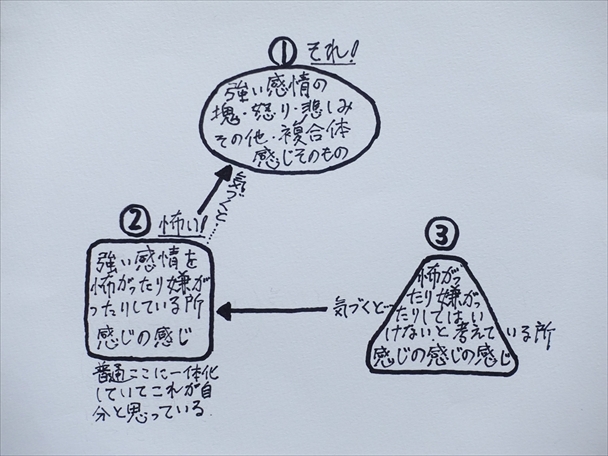 ① それ!
強い感情の
塊・怒り・悲しみ
その他・複合体
感じそのもの
気づくと……
② 怖い!
強い感情を
怖がったり嫌が
ったりしている所
感じの感じ
普通ここに一体化
していてこれが自
分と思っている.
③
怖がっ
たり嫌がっ
たりしてはい
けない、と考えている所
感じの感じの感じ
気づくと…